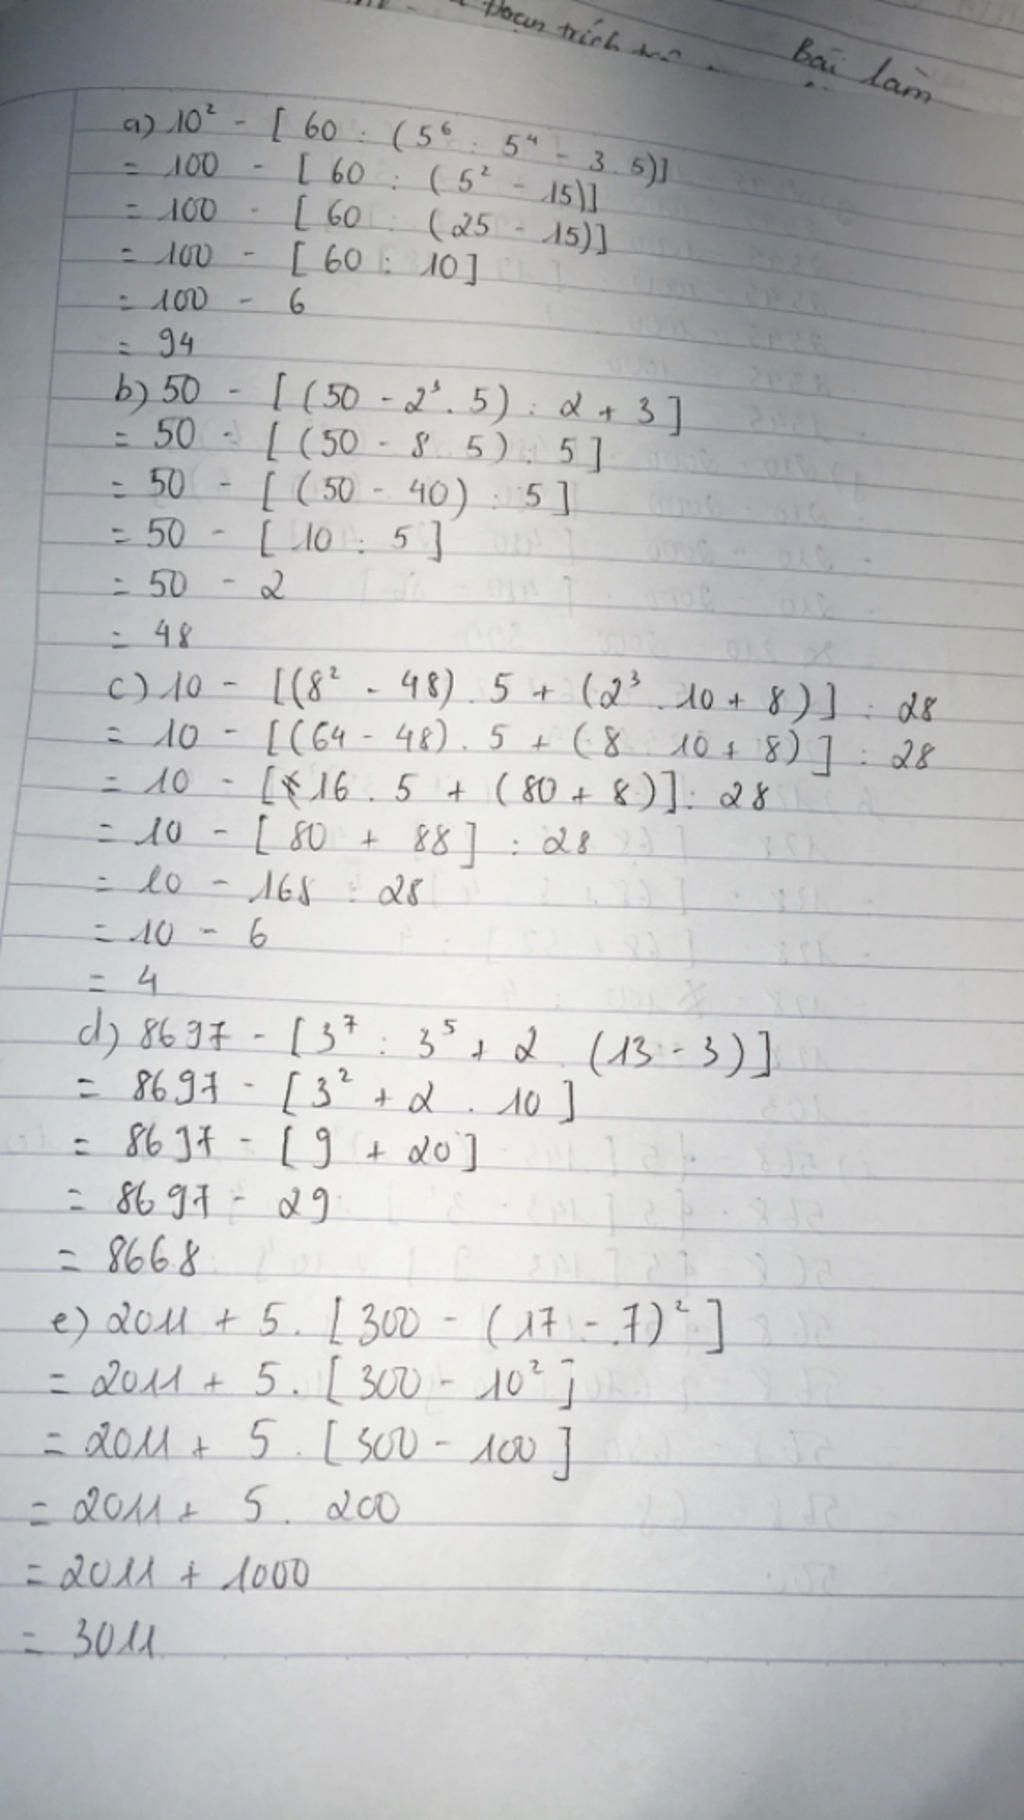 Đoạn trích
Bài làm
a) 10² - [ 60 : (5⁶ : 5⁴ - 3 . 5)]
= 100 - [ 60 : ( 5² - 15)]
= 100 - [ 60 : (25 - 15)]
= 100 - [ 60 : 10]
= 100 - 6
= 94
b) 50 - [ (50 - 2³. 5) : 2 + 3 ]
= 50 - [ (50 - 8 5 ) : 5 ]
= 50 - [ (50 - 40) : 5 ]
= 50 - [ 10 : 5 ]
= 50 - 2
= 48
c) 10 - [(8² - 48) . 5 + (2³ . 10 + 8)] : 28
= 10 - [(64 - 48) . 5 + ( 8 . 10 + 8)] : 28
= 10 - [ 16 . 5 + (80 + 8)] : 28
= 10 - [ 80 + 88 ] : 28
= 10 - 168 : 28
= 10 - 6
= 4
d) 8697 - [ 3⁷ : 3⁵ + 2 . (13 - 3)]
= 8697 - [ 3² + 2 . 10 ]
= 8697 - [ 9 + 20 ]
= 8697 - 29
= 8668
e) 2011 + 5. [ 300 - (17 - 7)² ]
= 2011 + 5. [ 300 - 10² ]
= 2011 + 5 . [ 300 - 100 ]
= 2011 + 5 . 200
= 2011 + 1000
= 3011